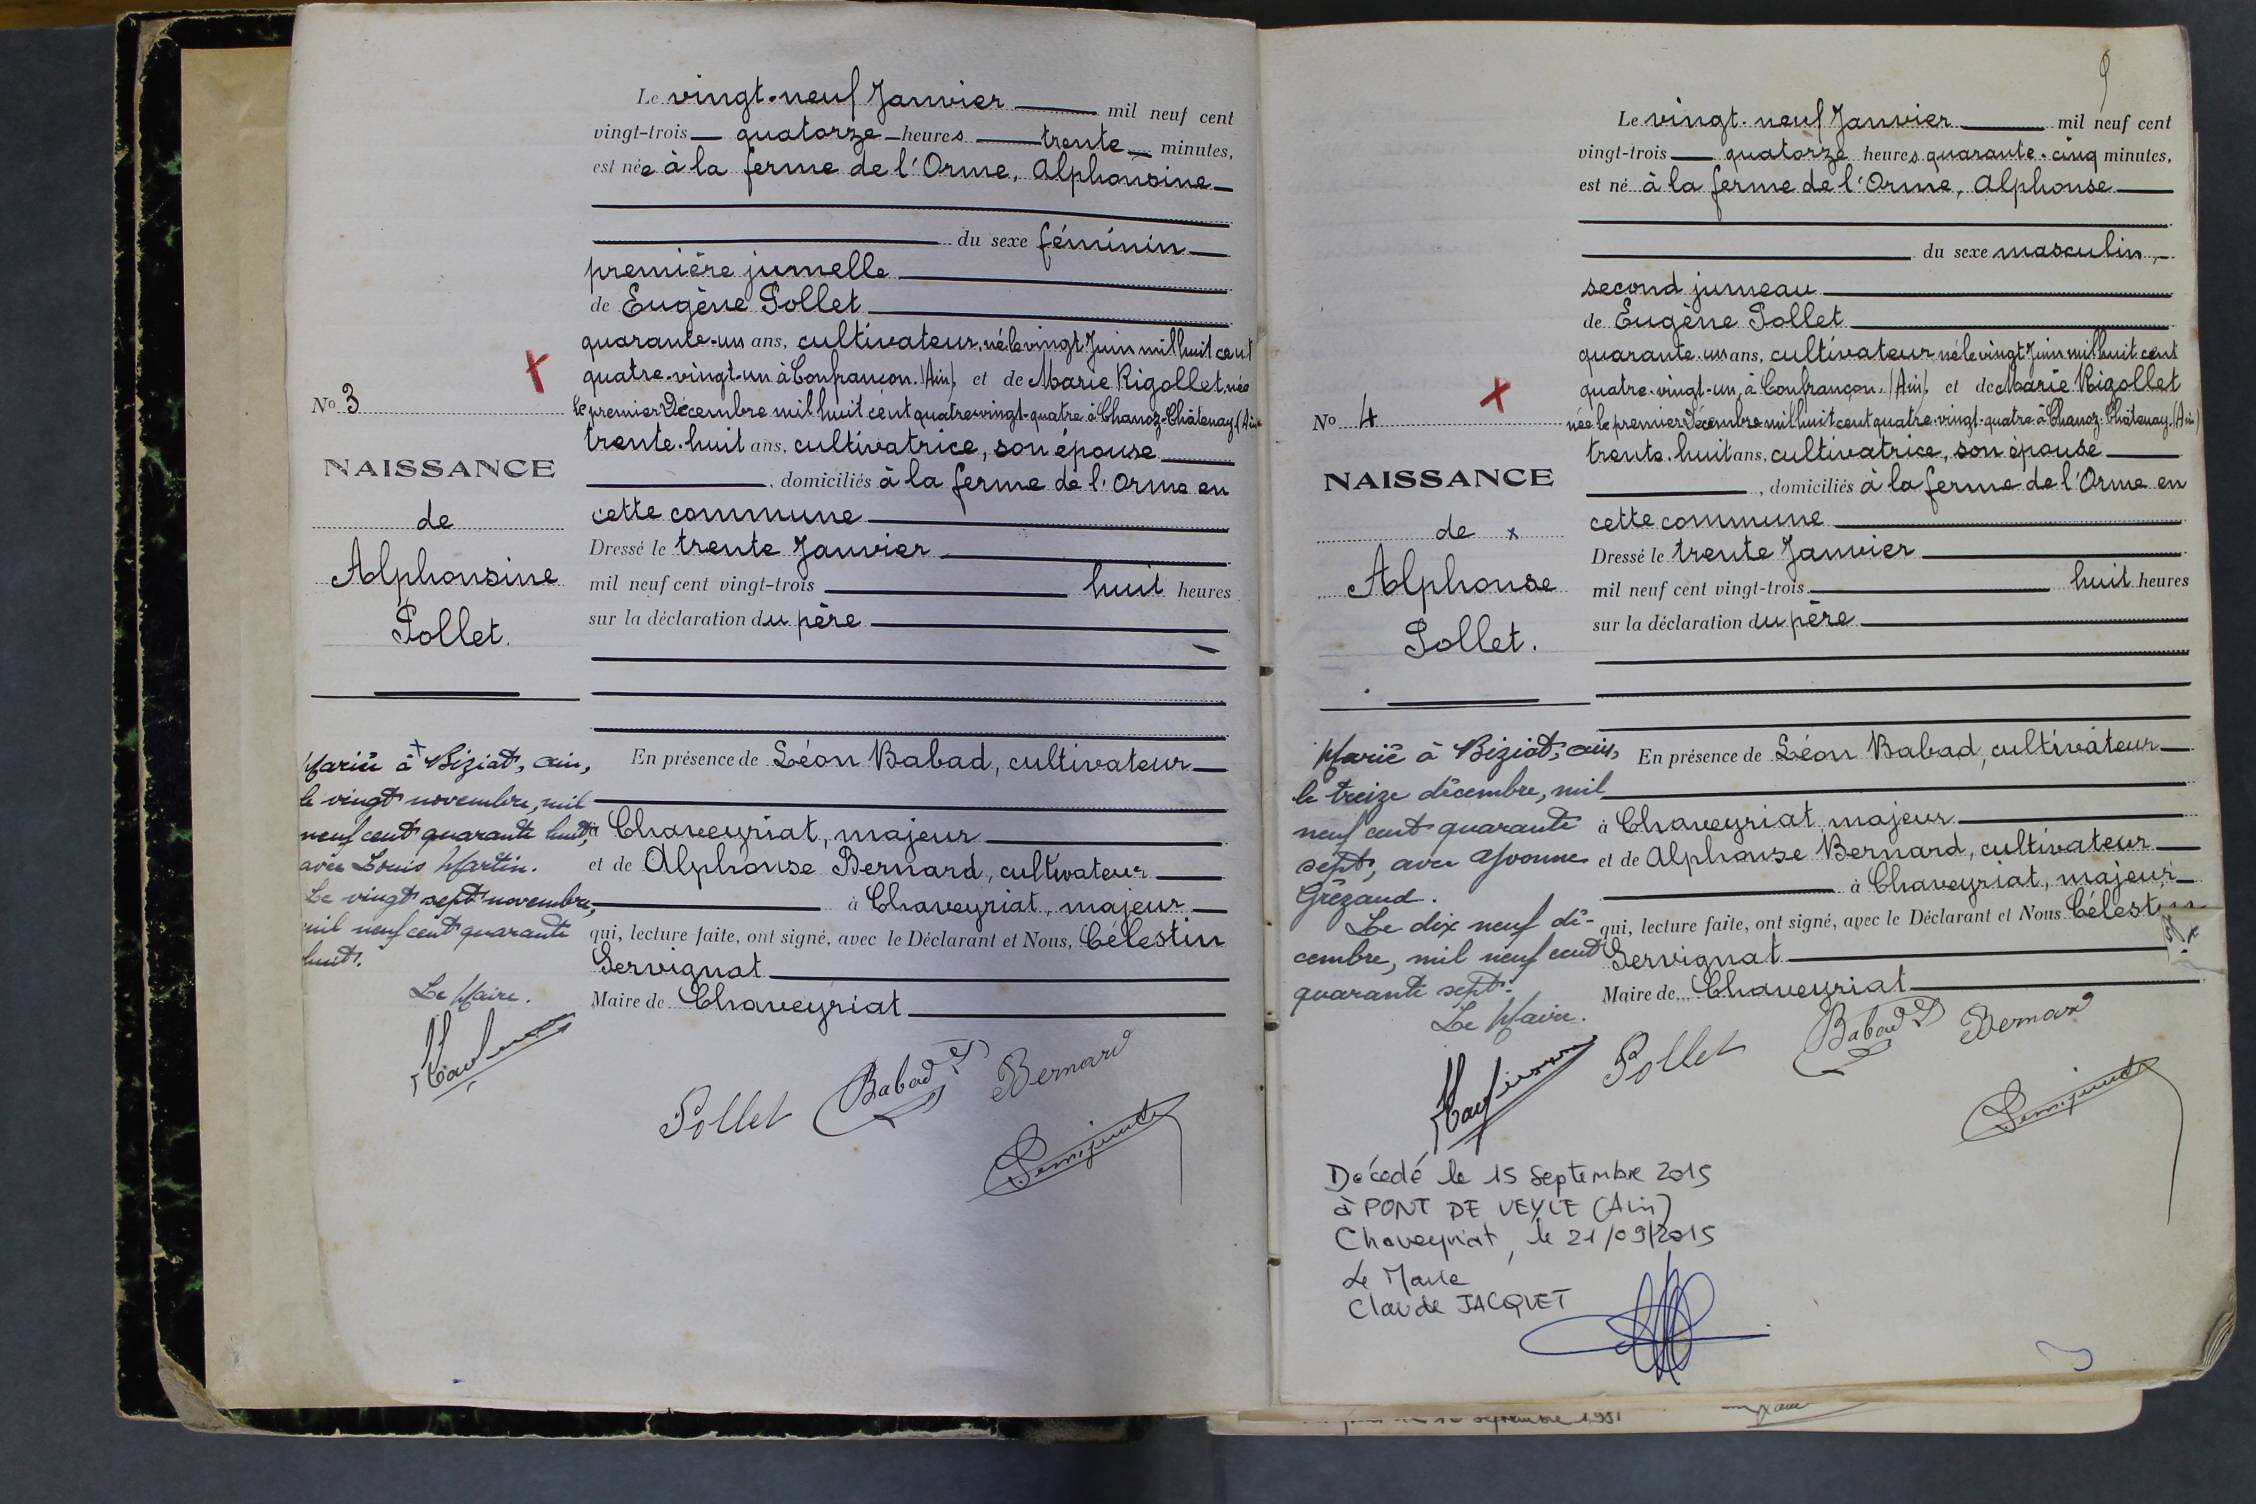 Le vingt-neuf Janvier mil neuf cent
vingt-trois quatorze heures trente minutes,
est née à la ferme de l'Orme, Alphonsine
du sexe féminin
première jumelle
de Eugène Pollet
quarante-un ans, cultivateur, né le vingt Juin mil huit cent
quatre-vingt-un à Confrançon (Ain), et de Marie Rigollet, née
le premier Décembre mil huit cent quatre-vingt-quatre à Chanoz-Châtenay (Ain
trente-huit ans, cultivatrice, son épouse
, domiciliés à la ferme de l'Orme en
cette commune
Dressé le trente Janvier
mil neuf cent vingt-trois huit heures
sur la déclaration du père
En présence de Léon Babad, cultivateur
à Chaveyriat, majeur
et de Alphonse Bernard, cultivateur
à Chaveyriat, majeur
qui, lecture faite, ont signé, avec le Déclarant et Nous, Célestin
Servignat
Maire de Chaveyriat
Pollet Babad Bernard
No 3
NAISSANCE
de
Alphonsine
Pollet.
Mariée à Biziat, ain,
le vingt novembre, mil
neuf cent quarante huit,
avec Louis Martin.
Le vingt sept novembre,
mil neuf cent quarante
huit.
Le Maire.
Le vingt-neuf Janvier mil neuf cent
vingt-trois quatorze heures quarante-cinq minutes,
est né à la ferme de l'Orme, Alphonse
du sexe masculin,
second jumeau
de Eugène Pollet
quarante-un ans, cultivateur né le vingt Juin mil huit cent
quatre-vingt-un, à Confrançon, (Ain), et de Marie Rigollet
née le premier Décembre mil huit cent quatre-vingt-quatre à Chanoz-Châtenay, (Ain)
trente-huit ans, cultivatrice, son épouse
, domiciliés à la ferme de l'Orme en
cette commune
Dressé le trente Janvier
mil neuf cent vingt-trois huit heures
sur la déclaration du père
En présence de Léon Babad, cultivateur
à Chaveyriat, majeur
et de Alphonse Bernard, cultivateur
à Chaveyriat, majeur
qui, lecture faite, ont signé, avec le Déclarant et Nous Célestin
Servignat
Maire de Chaveyriat
Pollet Babad Bernard
No 4
NAISSANCE
de x
Alphonse
Pollet.
Marié à Biziat, ain,
le treize décembre, mil
neuf cent quarante
sept, avec Yvonne
Grézaud.
Le dix neuf dé-
cembre, mil neuf cent
quarante sept.
Le Maire.
Décédé le 15 Septembre 2015
à PONT DE VEYLE (Ain)
Chaveyriat, le 21/09/2015
Le Maire
Claude JACQUET
septembre 1981